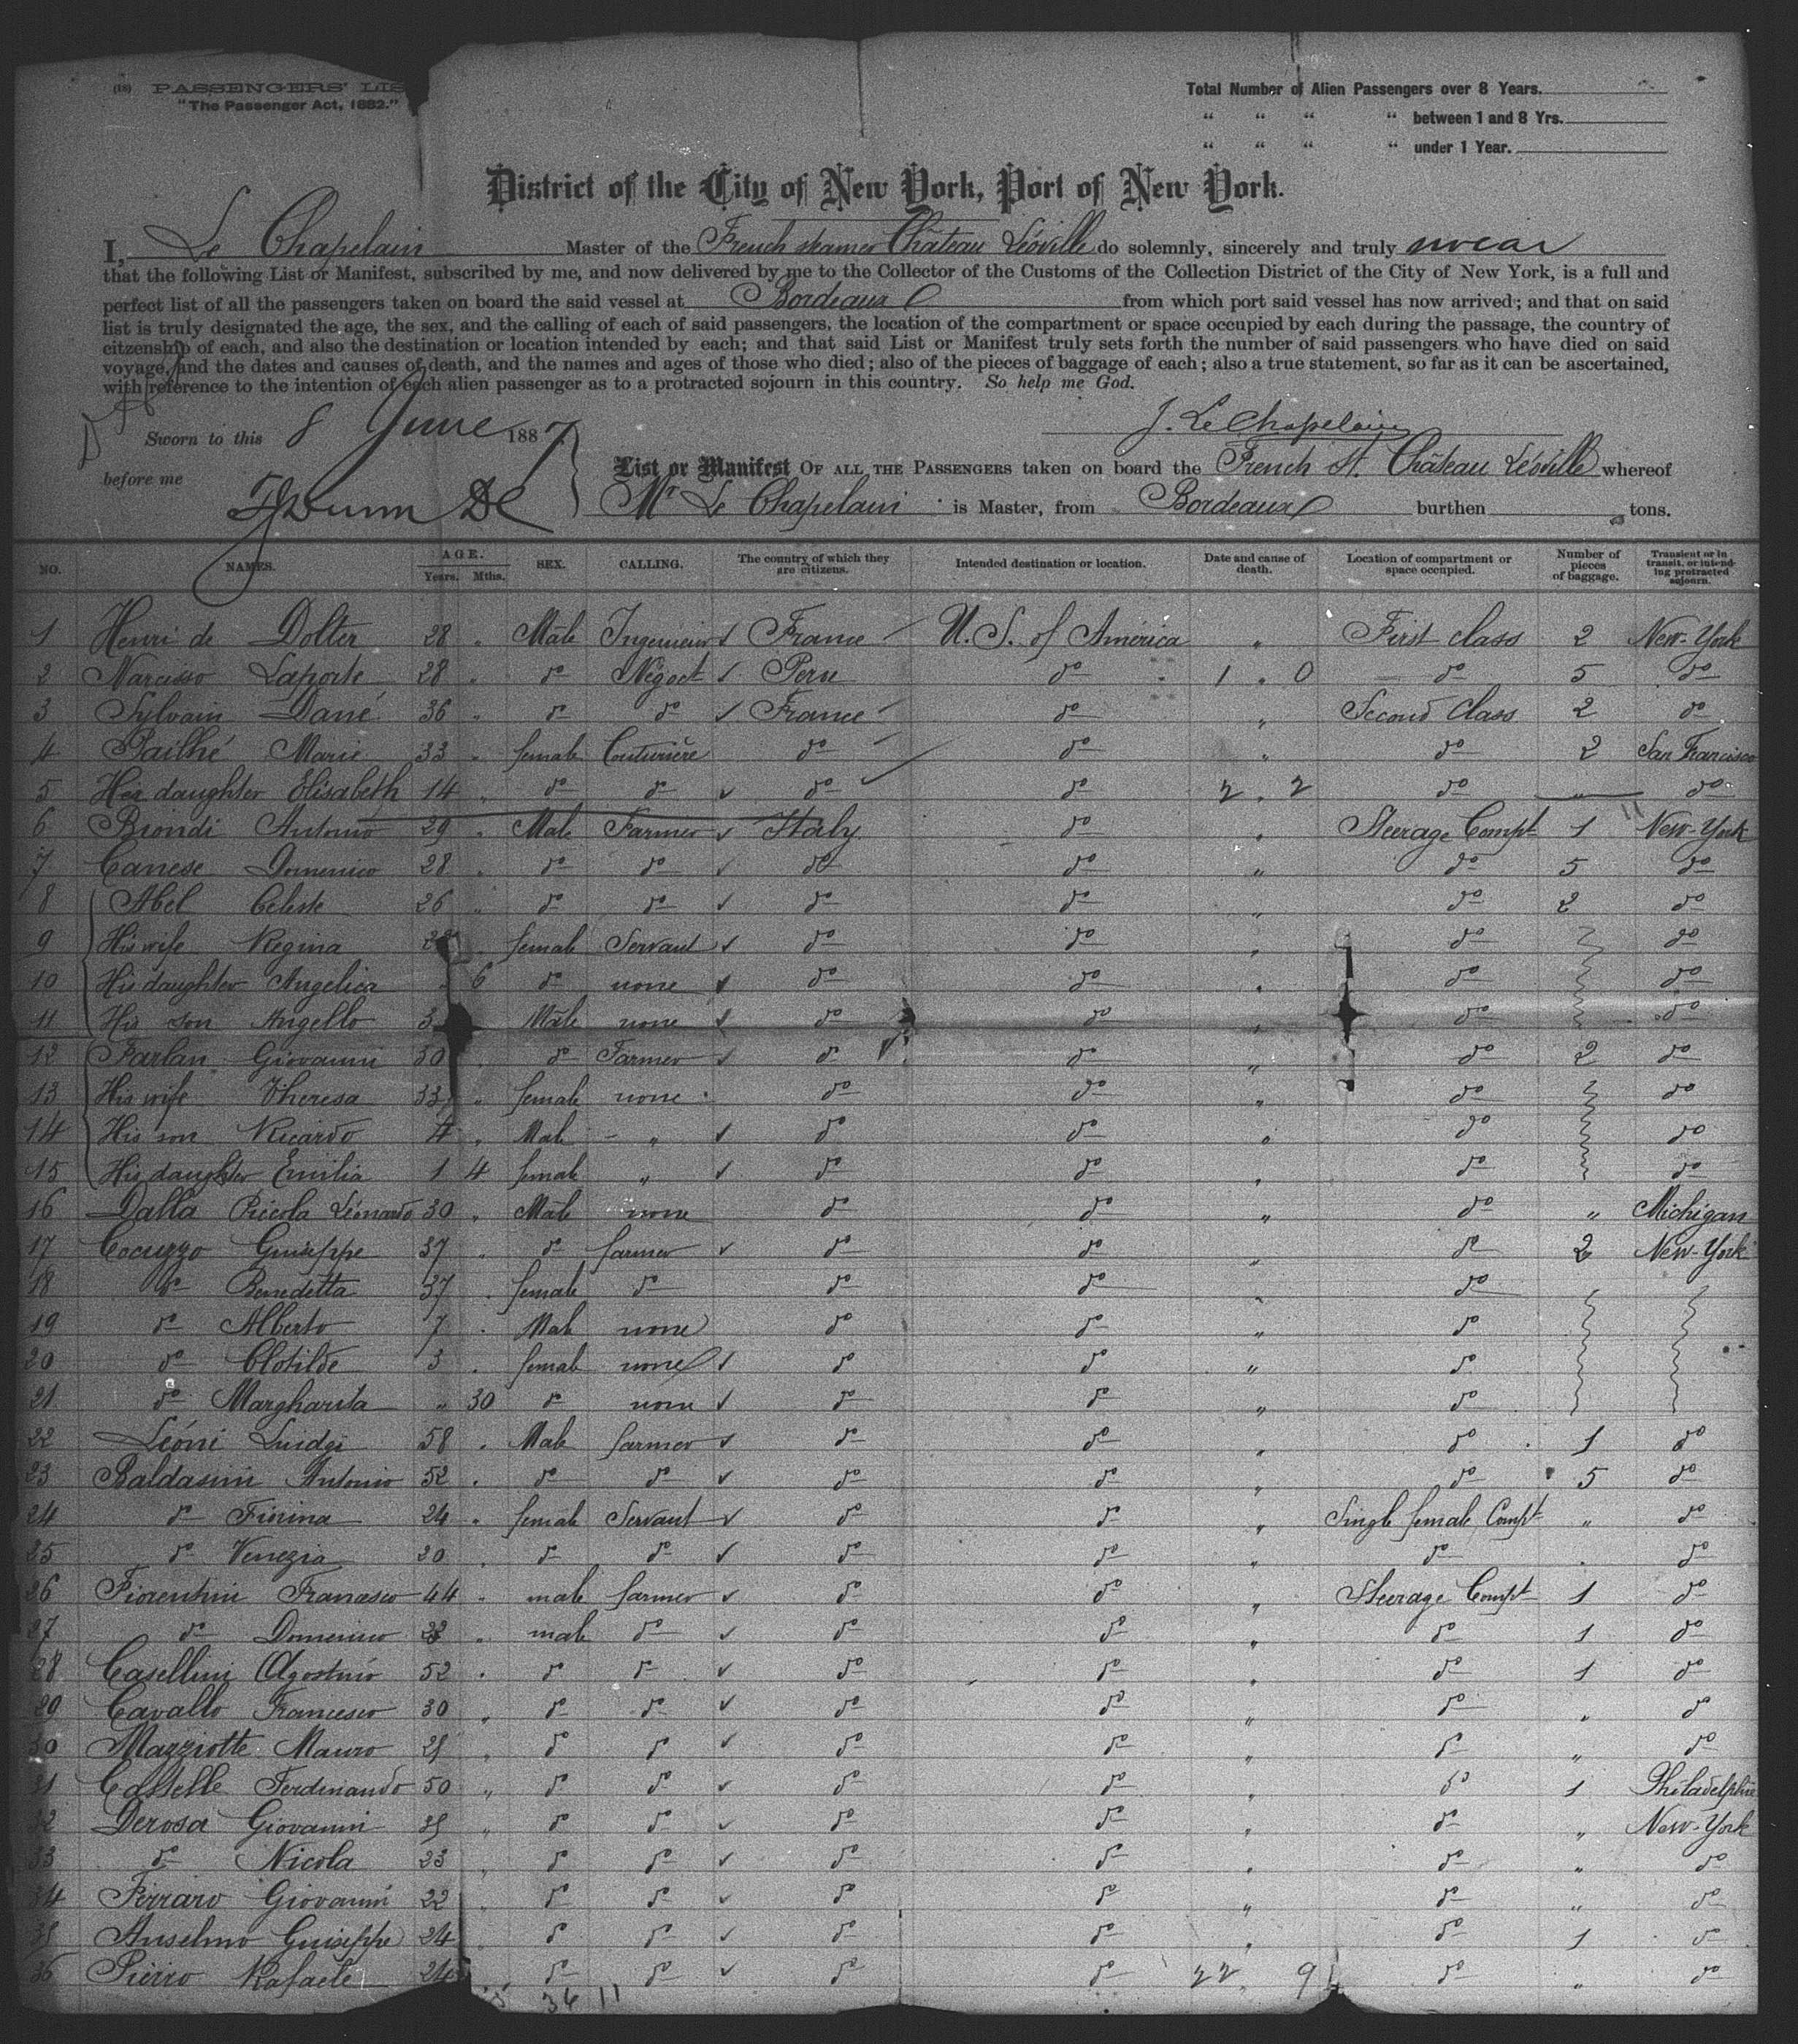 (18) PASSENGERS' LIS
"The Passenger Act, 1882."
Total Number of Alien Passengers over 8 Years.
" " " " between 1 and 8 Yrs.
" " " " under 1 Year.
District of the City of New York, Port of New York.
I, Le Chapelain Master of the French steamer Château Léoville do solemnly, sincerely and truly swear
that the following List or Manifest, subscribed by me, and now delivered by me to the Collector of the Customs of the Collection District of the City of New York, is a full and
perfect list of all the passengers taken on board the said vessel at Bordeaux from which port said vessel has now arrived; and that on said
list is truly designated the age, the sex, and the calling of each of said passengers, the location of the compartment or space occupied by each during the passage, the country of
citzenship of each, and also the destination or location intended by each; and that said List or Manifest truly sets forth the number of said passengers who have died on said
voyage, and the dates and causes of death, and the names and ages of those who died; also of the pieces of baggage of each; also a true statement, so far as it can be ascertained,
with reference to the intention of each alien passenger as to a protracted sojourn in this country. So help me God.
Sworn to this 8 June 1887 J. Le Chapelain
before me
List or Manifest OF ALL THE PASSENGERS taken on board the French St. Château Léoville whereof
Mr Le Chapelain is Master, from Bordeaux burthen tons.
NO. NAMES. AGE. Years. Mths. SEX. CALLING. The country of which they are citizens. Intended destination or location. Date and cause of death. Location of compartment or space occupied. Number of pieces of baggage. Transient or in transit, or intending protracted sojourn.
1 Henri de Dolter 28 " Male Ingenieur France U.S. of América " First class 2 New-York
2 Narcisso Laporte 28 " do Négoct Peru do 1 " 0 do 5 do
3 Sylvain Dané 36 " do do France do " Second Class 2 do
4 Pailhé Marie 33 " female Couturière do do " do 2 San Francisco
5 Her daughter Elisabeth 14 " do do do do 2 " 2 do " do
6 Biondi Antonio 29 " Male Farmer Italy do " Steerage Compt 1 New-York
7 Canese Domenico 28 " do do do do " do 5 do
8 Abel Celeste 26 " do do do do " do 2 do
9 His wife Regina " female Servant do do " do do
10 His daughter Angelica " 6 do none do do " do do
11 His son Angello 3 Male none do do " do do
12 Parlan Giovanni 30 " do Farmer do do " do 2 do
13 His wife Theresa 33 " female none do do " do do
14 His son Ricardo 4 " Male " do do " do do
15 His daughter Emilia 1 4 female " do do " do do
16 Dalla Piccola Léonardo 30 " Male none do do " do " Michigan
17 Cocuzzo Guiseppe 37 " do farmer do do " do 2 New-York
18 do Benedetta 37 " female do do do " do
19 do Alberto 7 " Male none do do " do
20 do Clotilde 3 " female none do do " do
21 do Margharita " 30 do none do do " do
22 Léoni Luidgi 58 " Male farmer do do " do 1 do
23 Baldasini Antonio 52 " do do do do " do 5 do
24 do Fiorina 24 " female Servant do do " Single female Compt " do
25 do Venezia 20 " do do do do " do " do
26 Fiorentini Francesco 44 " male farmer do do " Steerage Compt 1 do
27 do Domenico " male do do do " do 1 do
28 Casellini Agostino 52 " do do do do " do 1 do
29 Cavallo Francesco 30 " do do do do " do " do
30 Mazziotte Mauro 25 " do do do do " do " do
31 Castelle Ferdinando 50 " do do do do " do 1 Philadelphie
32 Derosa Giovanni 35 " do do do do " do " New-York
33 do Nicola 23 " do do do do " do " do
34 Ferraro Giovanni 22 " do do do do " do " do
35 Anselmo Guiseppe 24 do do do do " do 1 do
36 Pierro Rafaele 24 " do do do do 22 " 9 do " do
36 11